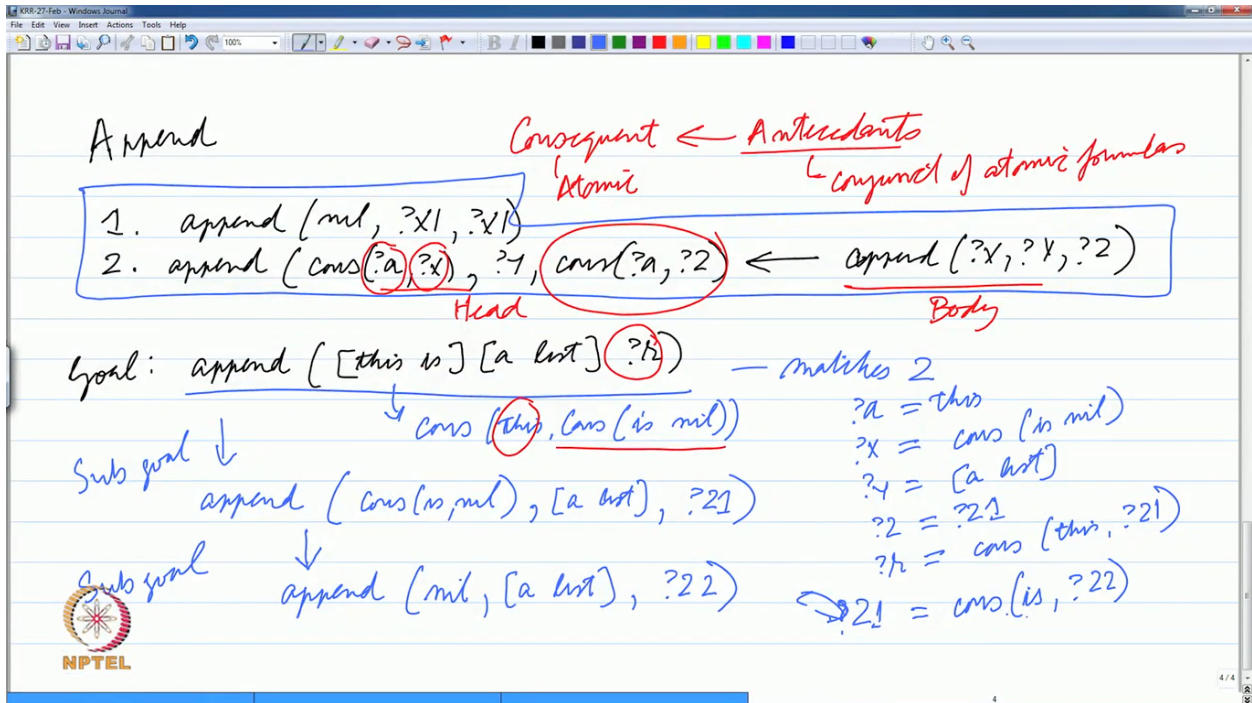 KRR-27-Feb - Windows Journal
File Edit View Insert Actions Tools Help
100%
B I
Append
Consequent ← Antecedants
Atomic
conjunct of atomic formulas
1. append (nil, ?x1, ?x1)
2. append (cons(?a, ?x), ?y, cons(?a, ?z) ← append (?x, ?y, ?z)
Head
Body
Goal: append ([this is] [a list] ?r) — matches 2
cons (this, cons (is nil))
?a = this
?x = cons (is nil)
?y = [a list]
?z = ?z1
?r = cons (this, ?z1)
Sub goal
append (cons(is,nil), [a list], ?z1)
Sub goal
append (nil, [a list], ?z2)
?z1 = cons (is, ?z2)
NPTEL
4 / 4
4